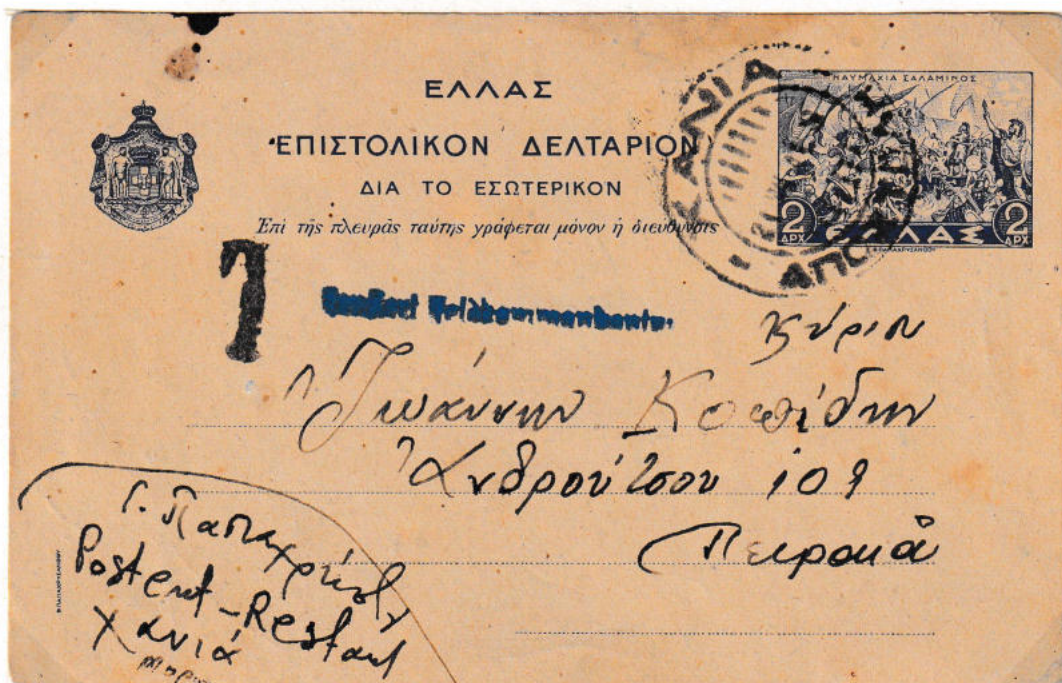 ΕΛΛΑΣ
ΕΠΙΣΤΟΛΙΚΟΝ ΔΕΛΤΑΡΙΟΝ
ΔΙΑ ΤΟ ΕΣΩΤΕΡΙΚΟΝ
Ἐπὶ τῆς πλευρᾶς ταύτης γράφεται μόνον ἡ διευθυνσις
ΝΑΥΜΑΧΙΑ ΣΑΛΑΜΙΝΟΣ
2 ΔΡΧ ΕΛΛΑΣ 2 ΔΡΧ
ΧΑΝΙΑ
Κύριον
Ἰωάννην
Ἀνδρούτσου 109
Πειραιᾶ
Γ. Παπαχρήστ
Postent-Restant
Χανιά